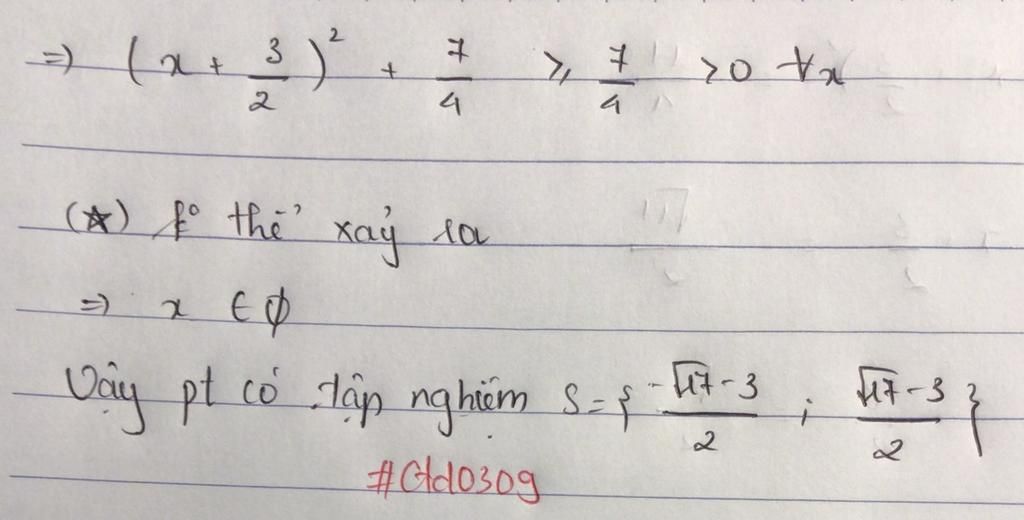 => (x + 3/2)² + 7/4 ⩾ 7/4 > 0 ∀x
(★) k° thể xảy ra
=> x ∈ ϕ
Vậy pt có tập nghiệm S = { (-√17 - 3)/2 ; (√17 - 3)/2 }
#Ctd0309